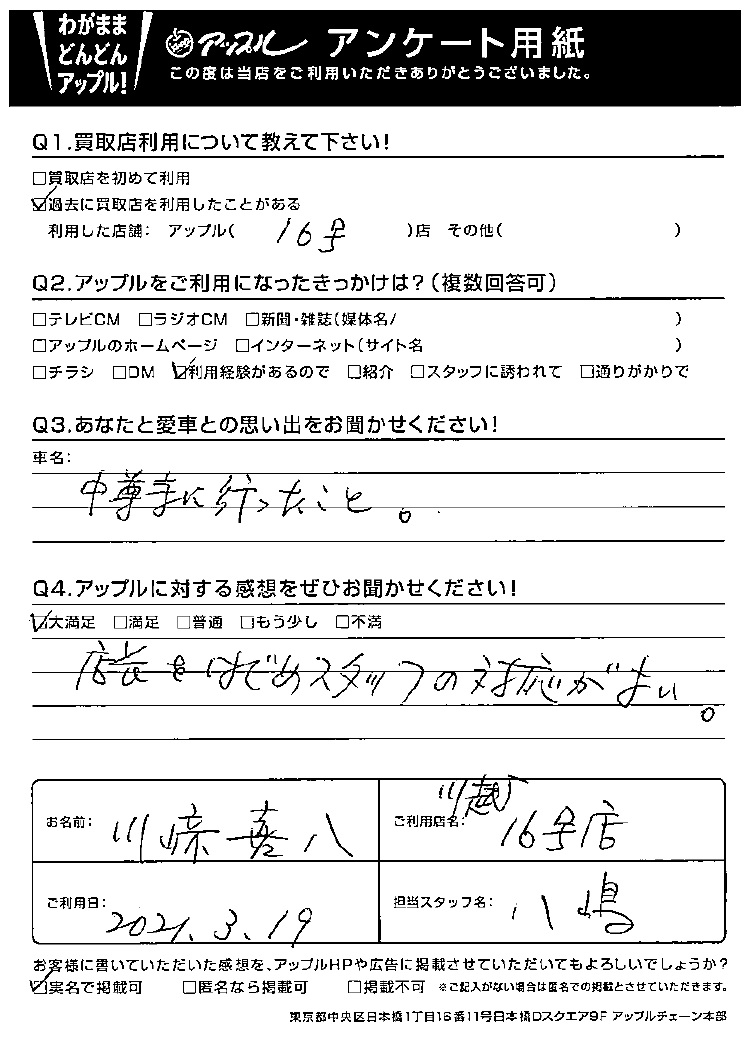 わがまま
どんどん
アップル!
アップル アンケート用紙
この度は当店をご利用いただきありがとうございました。
Q1.買取店利用について教えて下さい!
□買取店を初めて利用
☑過去に買取店を利用したことがある
利用した店舗: アップル( 16号 )店 その他( )
Q2.アップルをご利用になったきっかけは?(複数回答可)
□テレビCM □ラジオCM □新聞・雑誌(媒体名/ )
□アップルのホームページ □インターネット(サイト名 )
□チラシ □DM ☑利用経験があるので □紹介 □スタッフに誘われて □通りがかりで
Q3.あなたと愛車との思い出をお聞かせください!
車名:
中尊寺に行ったこと。
Q4.アップルに対する感想をぜひお聞かせください!
☑大満足 □満足 □普通 □もう少し □不満
店長をはじめスタッフの対応がよい。
お名前: 川崎喜八
ご利用店名: 川越16号店
ご利用日: 2021.3.19
担当スタッフ名: 八嶋
お客様に書いていただいた感想を、アップルHPや広告に掲載させていただいてもよろしいでしょうか?
☑実名で掲載可 □匿名なら掲載可 □掲載不可 ※ご記入がない場合は匿名での掲載とさせていただきます。
東京都中央区日本橋1丁目16番11号日本橋Dスクエア9F アップルチェーン本部